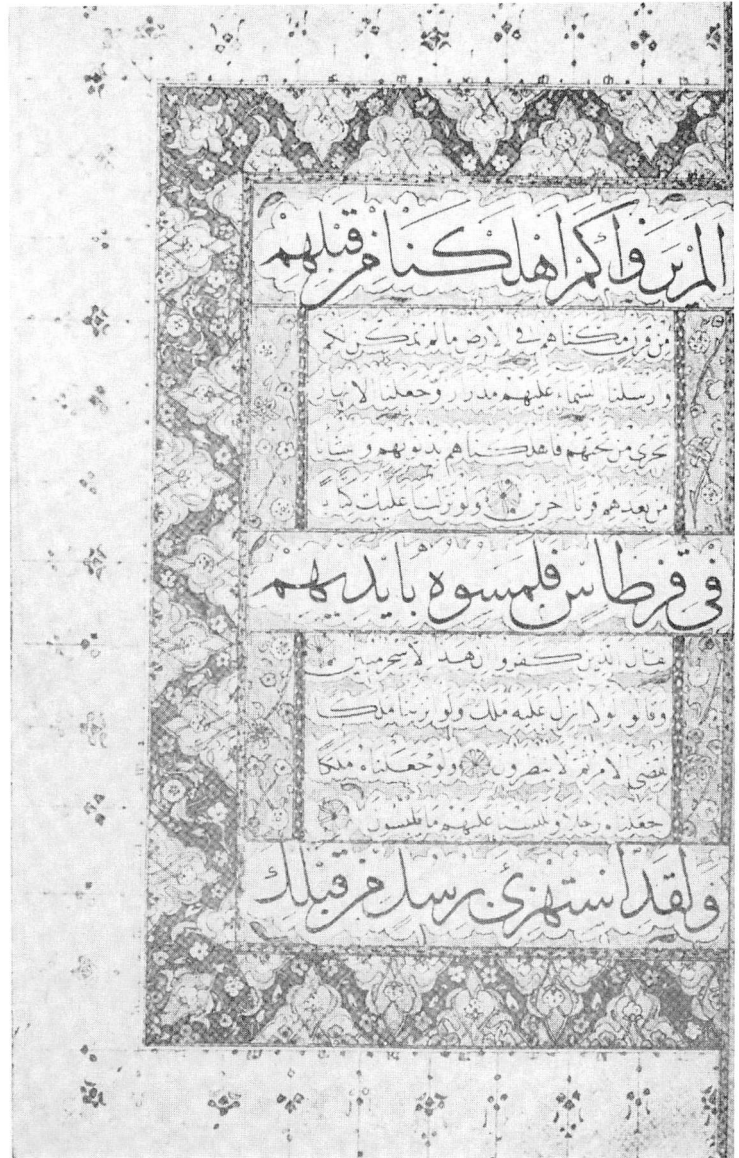 الم يروا كم اهلكنا من قبلهم
من قرن مكناهم في الارض ما لم نمكن لكم
وارسلنا السماء عليهم مدرارا وجعلنا الانهار
تجري من تحتهم فاهلكناهم بذنوبهم وانشأنا
من بعدهم قرنا اخرين ولو نزلنا عليك كتابا
في قرطاس فلمسوه بايديهم
لقال الذين كفروا ان هذا الا سحر مبين
وقالوا لولا انزل عليه ملك ولو انزلنا ملكا
لقضي الامر ثم لا ينظرون ولو جعلناه ملكا
لجعلناه رجلا وللبسنا عليهم ما يلبسون
ولقد استهزئ برسل من قبلك